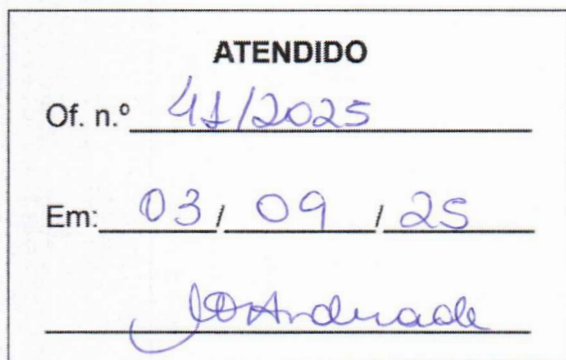 ATENDIDO
Of. n.º 41/2025
Em: 03 / 09 / 25
Andrade